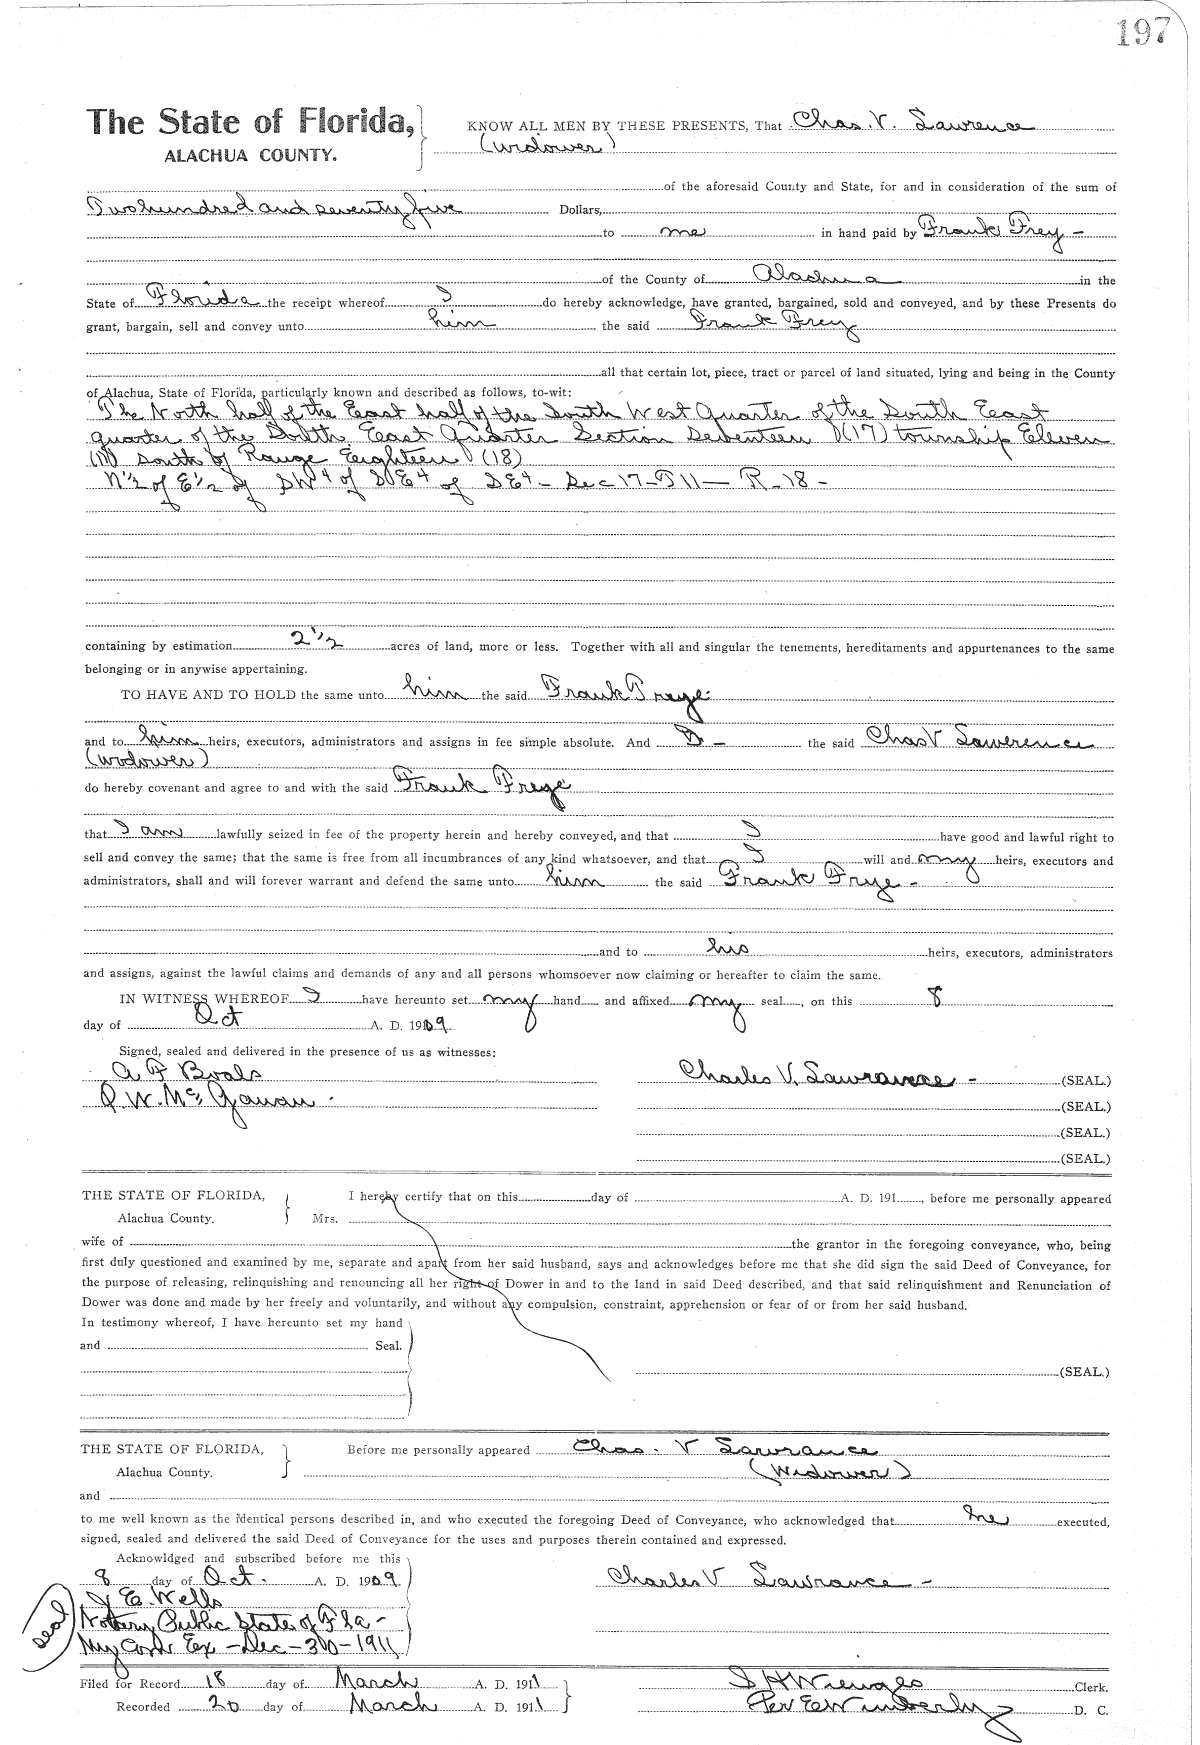 197
The State of Florida, KNOW ALL MEN BY THESE PRESENTS, That Chas. V. Lawrence
ALACHUA COUNTY. (widower)
of the aforesaid County and State, for and in consideration of the sum of
Two hundred and seventy five Dollars,
to me in hand paid by Frank Frey -
of the County of Alachua in the
State of Florida the receipt whereof I do hereby acknowledge, have granted, bargained, sold and conveyed, and by these Presents do
grant, bargain, sell and convey unto him the said Frank Frey
all that certain lot, piece, tract or parcel of land situated, lying and being in the County
of Alachua, State of Florida, particularly known and described as follows, to-wit:
The North half of the East half of the South West Quarter of the South East
quarter of the South East Quarter Section Seventeen (17) township Eleven
(11) south of Range Eeighteen (18)
N½ of E½ of SW4 of SE4 of SE4 - Sec 17 - T 11 - R - 18 -
containing by estimation 2 1/2 acres of land, more or less. Together with all and singular the tenements, hereditaments and appurtenances to the same
belonging or in anywise appertaining.
TO HAVE AND TO HOLD the same unto him the said Frank Freye
and to him heirs, executors, administrators and assigns in fee simple absolute. And I - the said Chas V Lawerence
(widower)
do hereby covenant and agree to and with the said Frank Freye
that I am lawfully seized in fee of the property herein and hereby conveyed, and that I have good and lawful right to
sell and convey the same; that the same is free from all incumbrances of any kind whatsoever, and that I will and my heirs, executors and
administrators, shall and will forever warrant and defend the same unto him the said Frank Frye -
and to his heirs, executors, administrators
and assigns, against the lawful claims and demands of any and all persons whomsoever now claiming or hereafter to claim the same.
IN WITNESS WHEREOF I have hereunto set my hand and affixed my seal, on this 8
day of Oct A. D. 1909
Signed, sealed and delivered in the presence of us as witnesses:
A F Boals Charles V. Lawrance - (SEAL.)
W. Mc (SEAL.)
(SEAL.)
(SEAL.)
THE STATE OF FLORIDA, I hereby certify that on this day of A. D. 191 , before me personally appeared
Alachua County. Mrs.
wife of the grantor in the foregoing conveyance, who, being
first duly questioned and examined by me, separate and apart from her said husband, says and acknowledges before me that she did sign the said Deed of Conveyance, for
the purpose of releasing, relinquishing and renouncing all her right of Dower in and to the land in said Deed described, and that said relinquishment and Renunciation of
Dower was done and made by her freely and voluntarily, and without any compulsion, constraint, apprehension or fear of or from her said husband.
In testimony whereof, I have hereunto set my hand
and Seal.
(SEAL.)
THE STATE OF FLORIDA, Before me personally appeared Chas. V Lawrance
Alachua County. (Widower)
and
to me well known as the identical persons described in, and who executed the foregoing Deed of Conveyance, who acknowledged that he executed,
signed, sealed and delivered the said Deed of Conveyance for the uses and purposes therein contained and expressed.
Acknowldged and subscribed before me this
8 day of Oct. A. D. 1909 Charles V Lawrance -
E. Wells
seal Notary Public State of Fla -
My Com Ex - Dec - 30 - 1911
Filed for Record 18 day of March A. D. 1911 S H Wienges Clerk.
Recorded 20 day of March A. D. 1911 Per E Wimberly D. C.